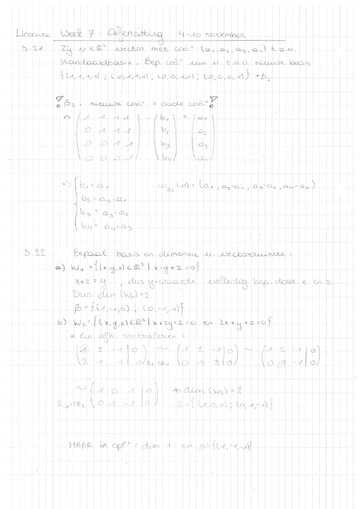 Lineaire Week 7 - Oefenzitting 4-10 november
3.21 Zij v ∈ ℝ⁴ vector met coö (a₁, a₂, a₃, a₄) t.o.v.
standaardbasis. Bep. coö van v t.o.v. nieuwe basis
{(1,1,1,1) ; (0,1,1,1) ; (0,0,1,1) ; (0,0,0,1)} = β₂
β₂ . nieuwe coö = oude coö
b₁ a₁
b₂ a₂
b₃ a₃
b₄ a₄
b₁ = a₁
b₂ = a₂-a₁
b₃ = a₃-a₂
b₄ = a₄-a₃
(v) = (a₁, a₂-a₁, a₃-a₂, a₄-a₃)
3.22 Bepaal basis en dimensie v. vectorruimtes :
a) W₁ = {(x,y,z) ∈ ℝ³ | x+y+z=0}
x+z = -y , dus y-waarde volledig bep. door x en z
Dus dim (W₁) = 2
β = {(1,-1,0) ; (0,-1,1)}
b) W₂ = {(x,y,z) ∈ ℝ³ | x+2y-z=0 en 2x+y+z=0}
lin. afh. controleren :
dim (W₂) = 2
MAAR in opl : dim 1 en